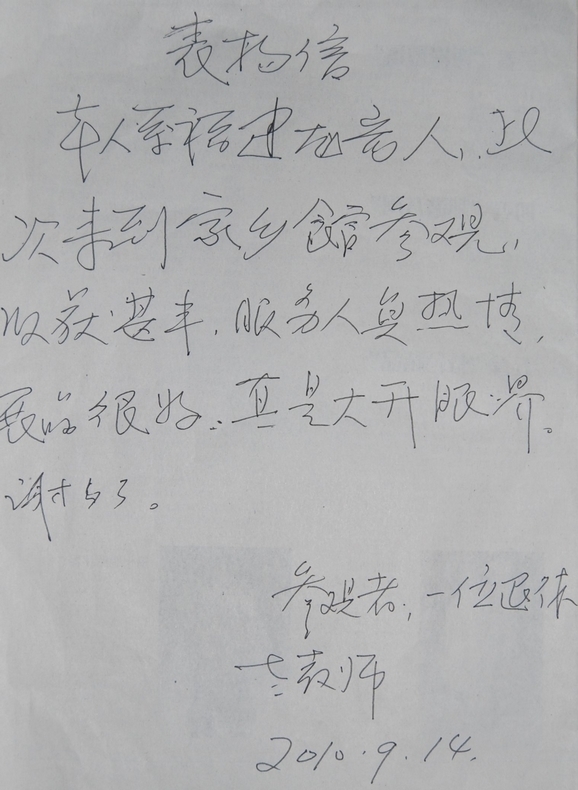 表扬信
本人系福建龙岩人，此
次来到家乡館参观，
收获甚丰，服务人员热情，
展品很好，真是大开眼界。
谢谢了。
参观者，一位退休
老教师
2010.9.14.